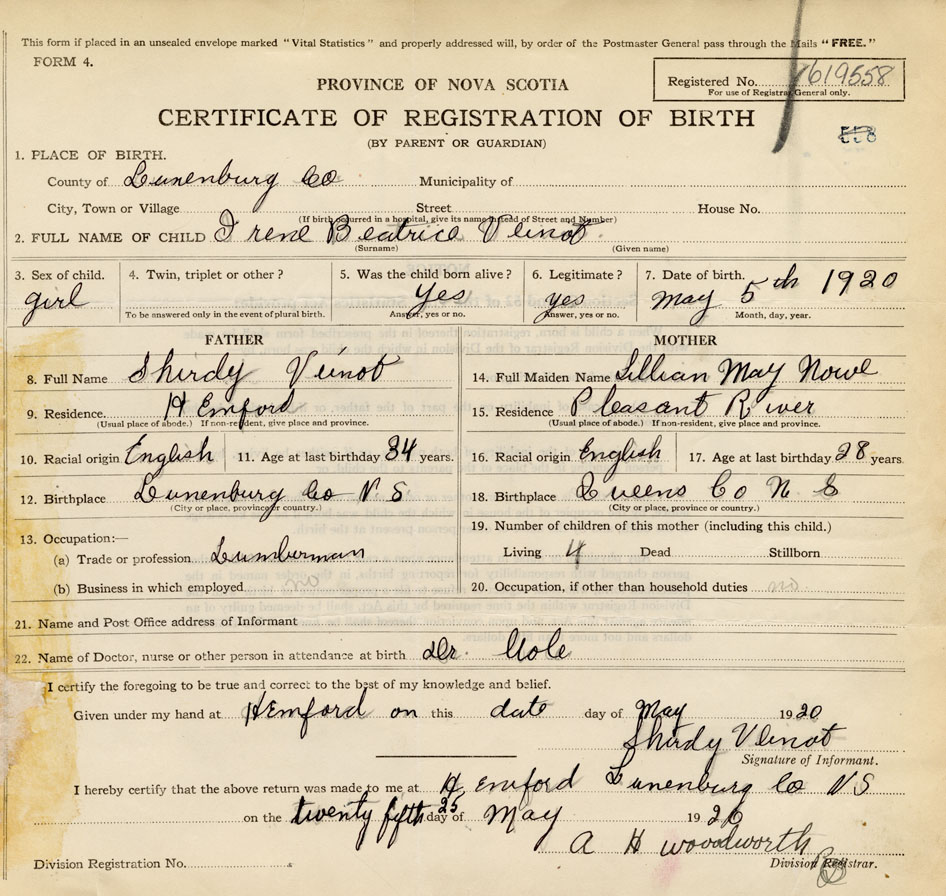 This form if placed in an unsealed envelope marked "Vital Statistics" and properly addressed will, by order of the Postmaster General pass through the Mails "FREE."
FORM 4.
PROVINCE OF NOVA SCOTIA
Registered No. 7619558
For use of Registrar General only.
CERTIFICATE OF REGISTRATION OF BIRTH
(BY PARENT OR GUARDIAN)
1. PLACE OF BIRTH.
County of Lunenburg Co Municipality of
City, Town or Village Street House No.
(If birth occurred in a hospital, give its name instead of Street and Number)
2. FULL NAME OF CHILD Irene Beatrice Veinot
(Surname) (Given name)
3. Sex of child. 4. Twin, triplet or other? 5. Was the child born alive? 6. Legitimate? 7. Date of birth.
girl Yes yes May 5th 1920
To be answered only in the event of plural birth. Answer, yes or no. Answer, yes or no. Month, day, year.
FATHER MOTHER
8. Full Name Shirdy Veinot 14. Full Maiden Name Lillian May Nowe
9. Residence. Hemford 15. Residence Pleasant River
(Usual place of abode.) If non-resident, give place and province. (Usual place of abode.) If non-resident, give place and province.
10. Racial origin English 11. Age at last birthday 34 years. 16. Racial origin English 17. Age at last birthday 28 years.
12. Birthplace Lunenburg Co N S 18. Birthplace Queens Co N. S
(City or place, province or country.) (City or place, province or country.)
13. Occupation:— 19. Number of children of this mother (including this child.)
(a) Trade or profession Lumberman Living 4 Dead Stillborn
(b) Business in which employed no 20. Occupation, if other than household duties no
21. Name and Post Office address of Informant
22. Name of Doctor, nurse or other person in attendance at birth Dr. Cole
I certify the foregoing to be true and correct to the best of my knowledge and belief.
Given under my hand at Hemford on this date day of May 1920
Shirdy Veinot
Signature of Informant.
I hereby certify that the above return was made to me at Hemford Lunenburg Co N S
on the twenty fifth 25 day of May 1920
A H Woodworth
Division Registration No. Division Registrar.